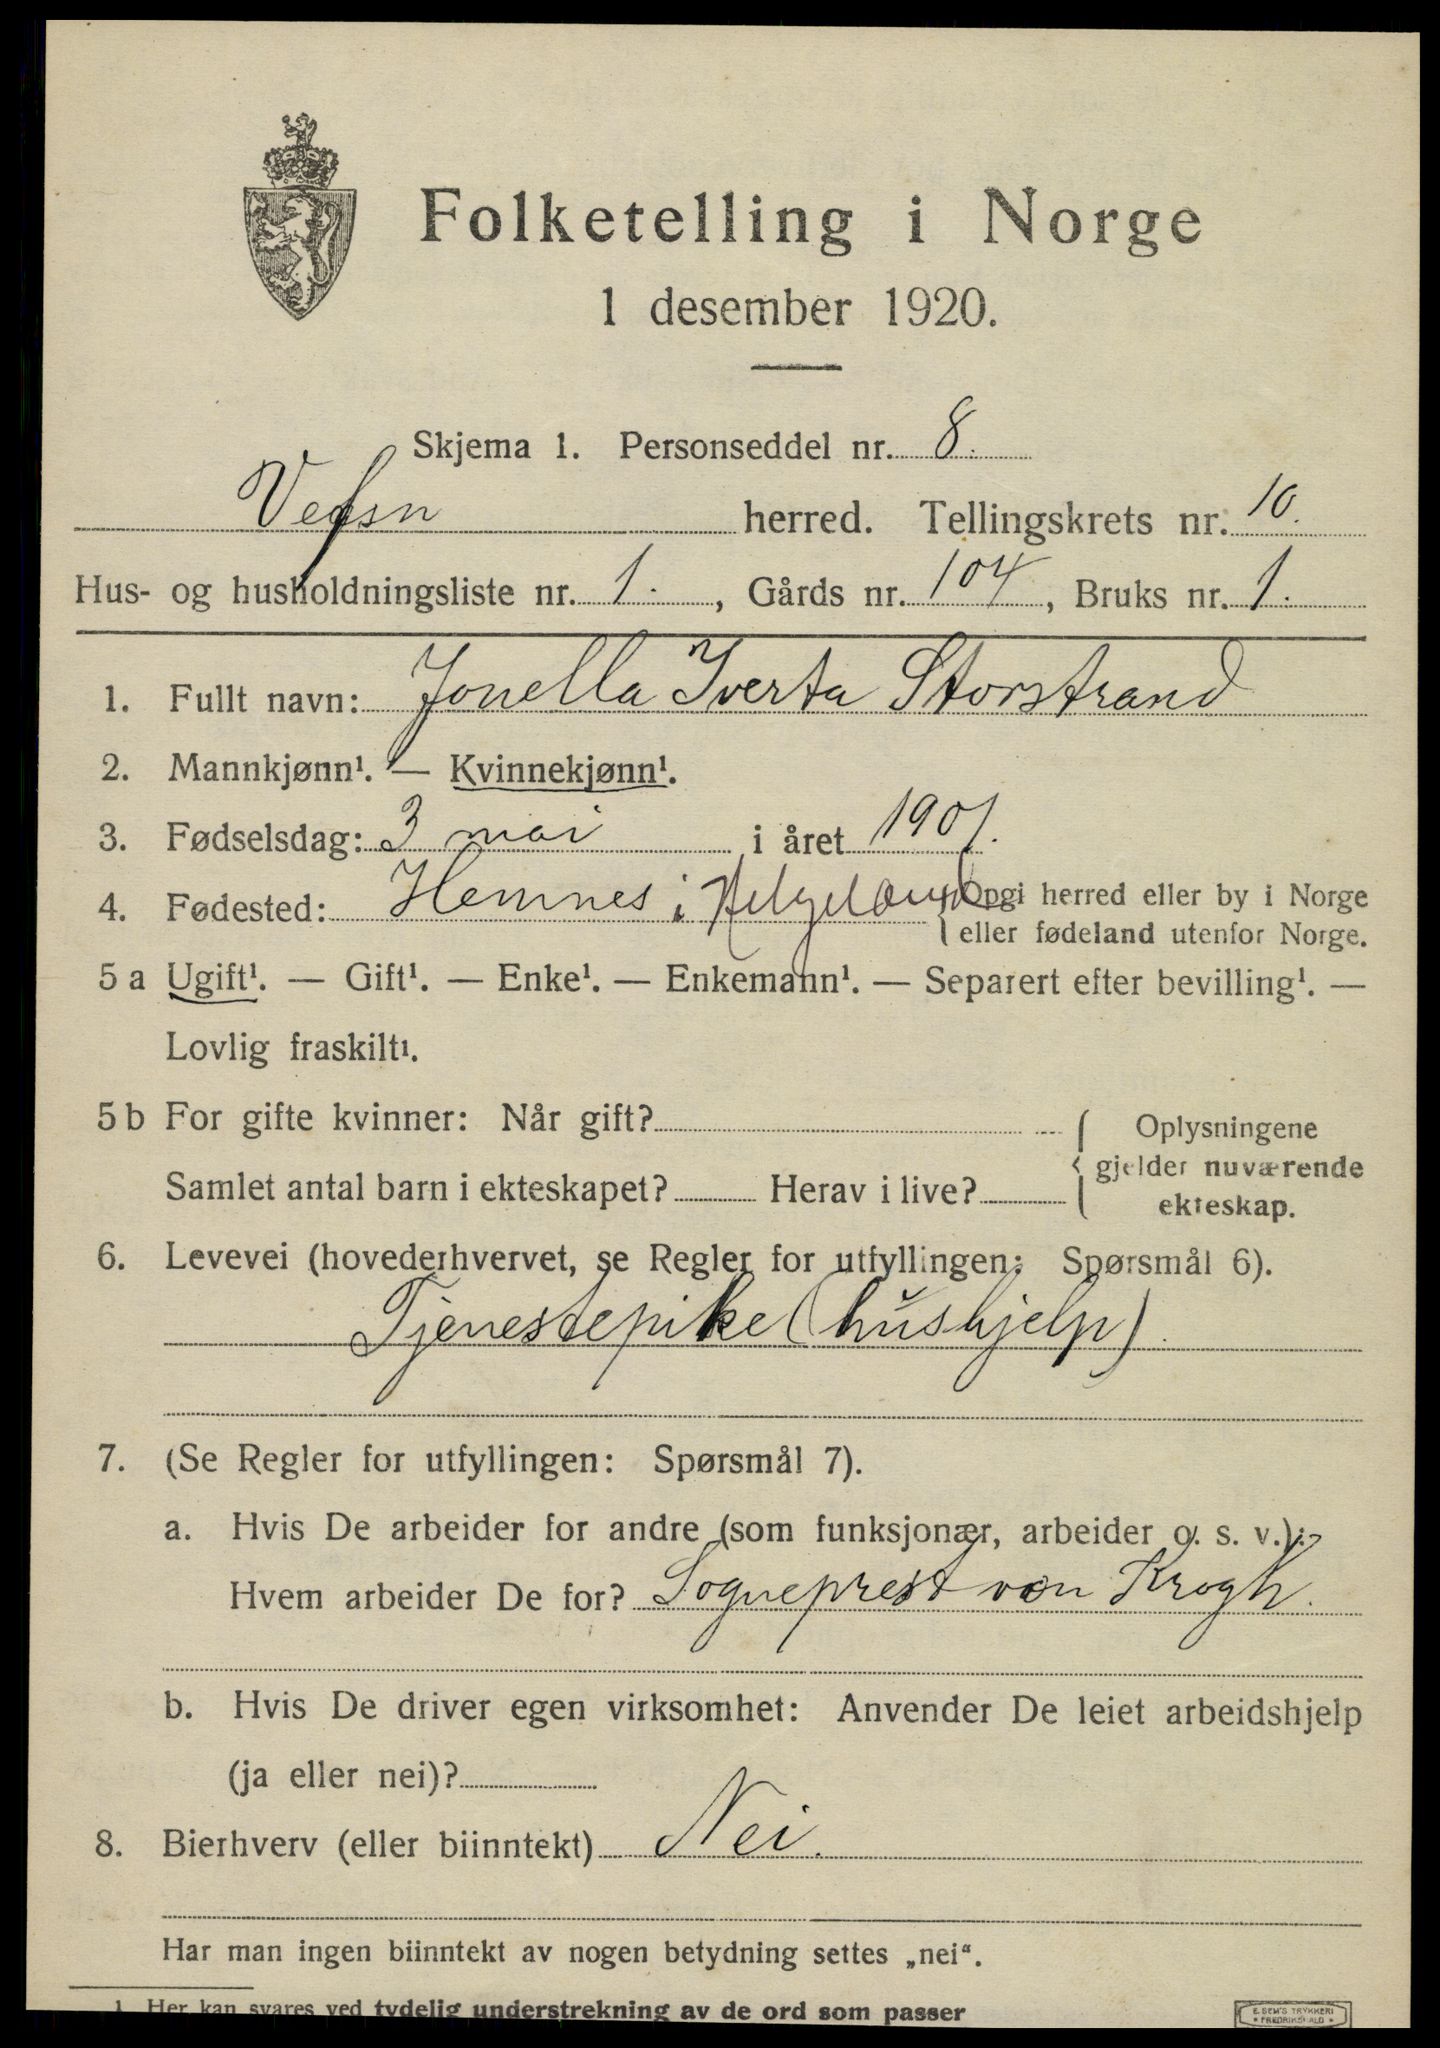 Folketelling i Norge
1 desember 1920.
Skjema 1. Personseddel nr. 8.
Vefsn herred. Tellingskrets nr. 10.
Hus- og husholdningsliste nr. 1. , Gårds nr. 104 , Bruks nr. 1.
1. Fullt navn: Jonella Iverta Storstrand
2. Mannkjønn¹. — Kvinnekjønn¹.
3. Fødselsdag: 3 mai i året 1901.
4. Fødested: Hemnes i Helgeland { Opgi herred eller by i Norge
eller fødeland utenfor Norge.
5 a Ugift¹. — Gift¹. — Enke¹. — Enkemann¹. — Separert efter bevilling¹. —
Lovlig fraskilt¹.
5 b For gifte kvinner: Når gift? { Oplysningene
gjelder nuværende
Samlet antal barn i ekteskapet? Herav i live? ekteskap.
6. Levevei (hovederhvervet, se Regler for utfyllingen: Spørsmål 6).
Tjenestepike (hushjelp).
7. (Se Regler for utfyllingen: Spørsmål 7).
a. Hvis De arbeider for andre (som funksjonær, arbeider o. s. v.):
Hvem arbeider De for? Sogneprest von Krogh.
b. Hvis De driver egen virksomhet: Anvender De leiet arbeidshjelp
(ja eller nei)?
8. Bierhverv (eller biinntekt) Nei.
Har man ingen biinntekt av nogen betydning settes „nei“.
1. Her kan svares ved tydelig understrekning av de ord som passer
E. SEM'S TRYKKERI
• FREDRIKSHALD •